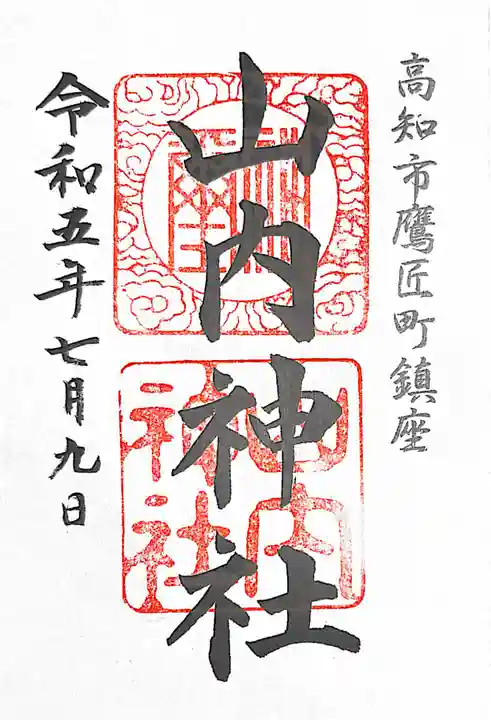 高知市鷹匠町鎮座
山内神社
令和五年七月九日
山内
神社